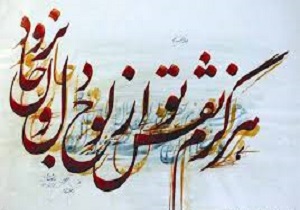 هرگزم نقش تو از لوح دل و جان نرود